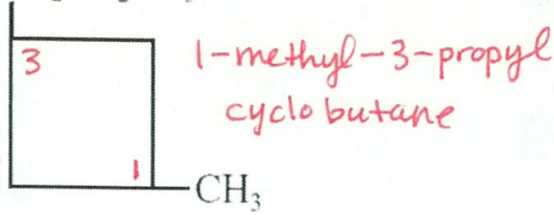 3
1-methyl-3-propyl
cyclobutane
1
CH₃